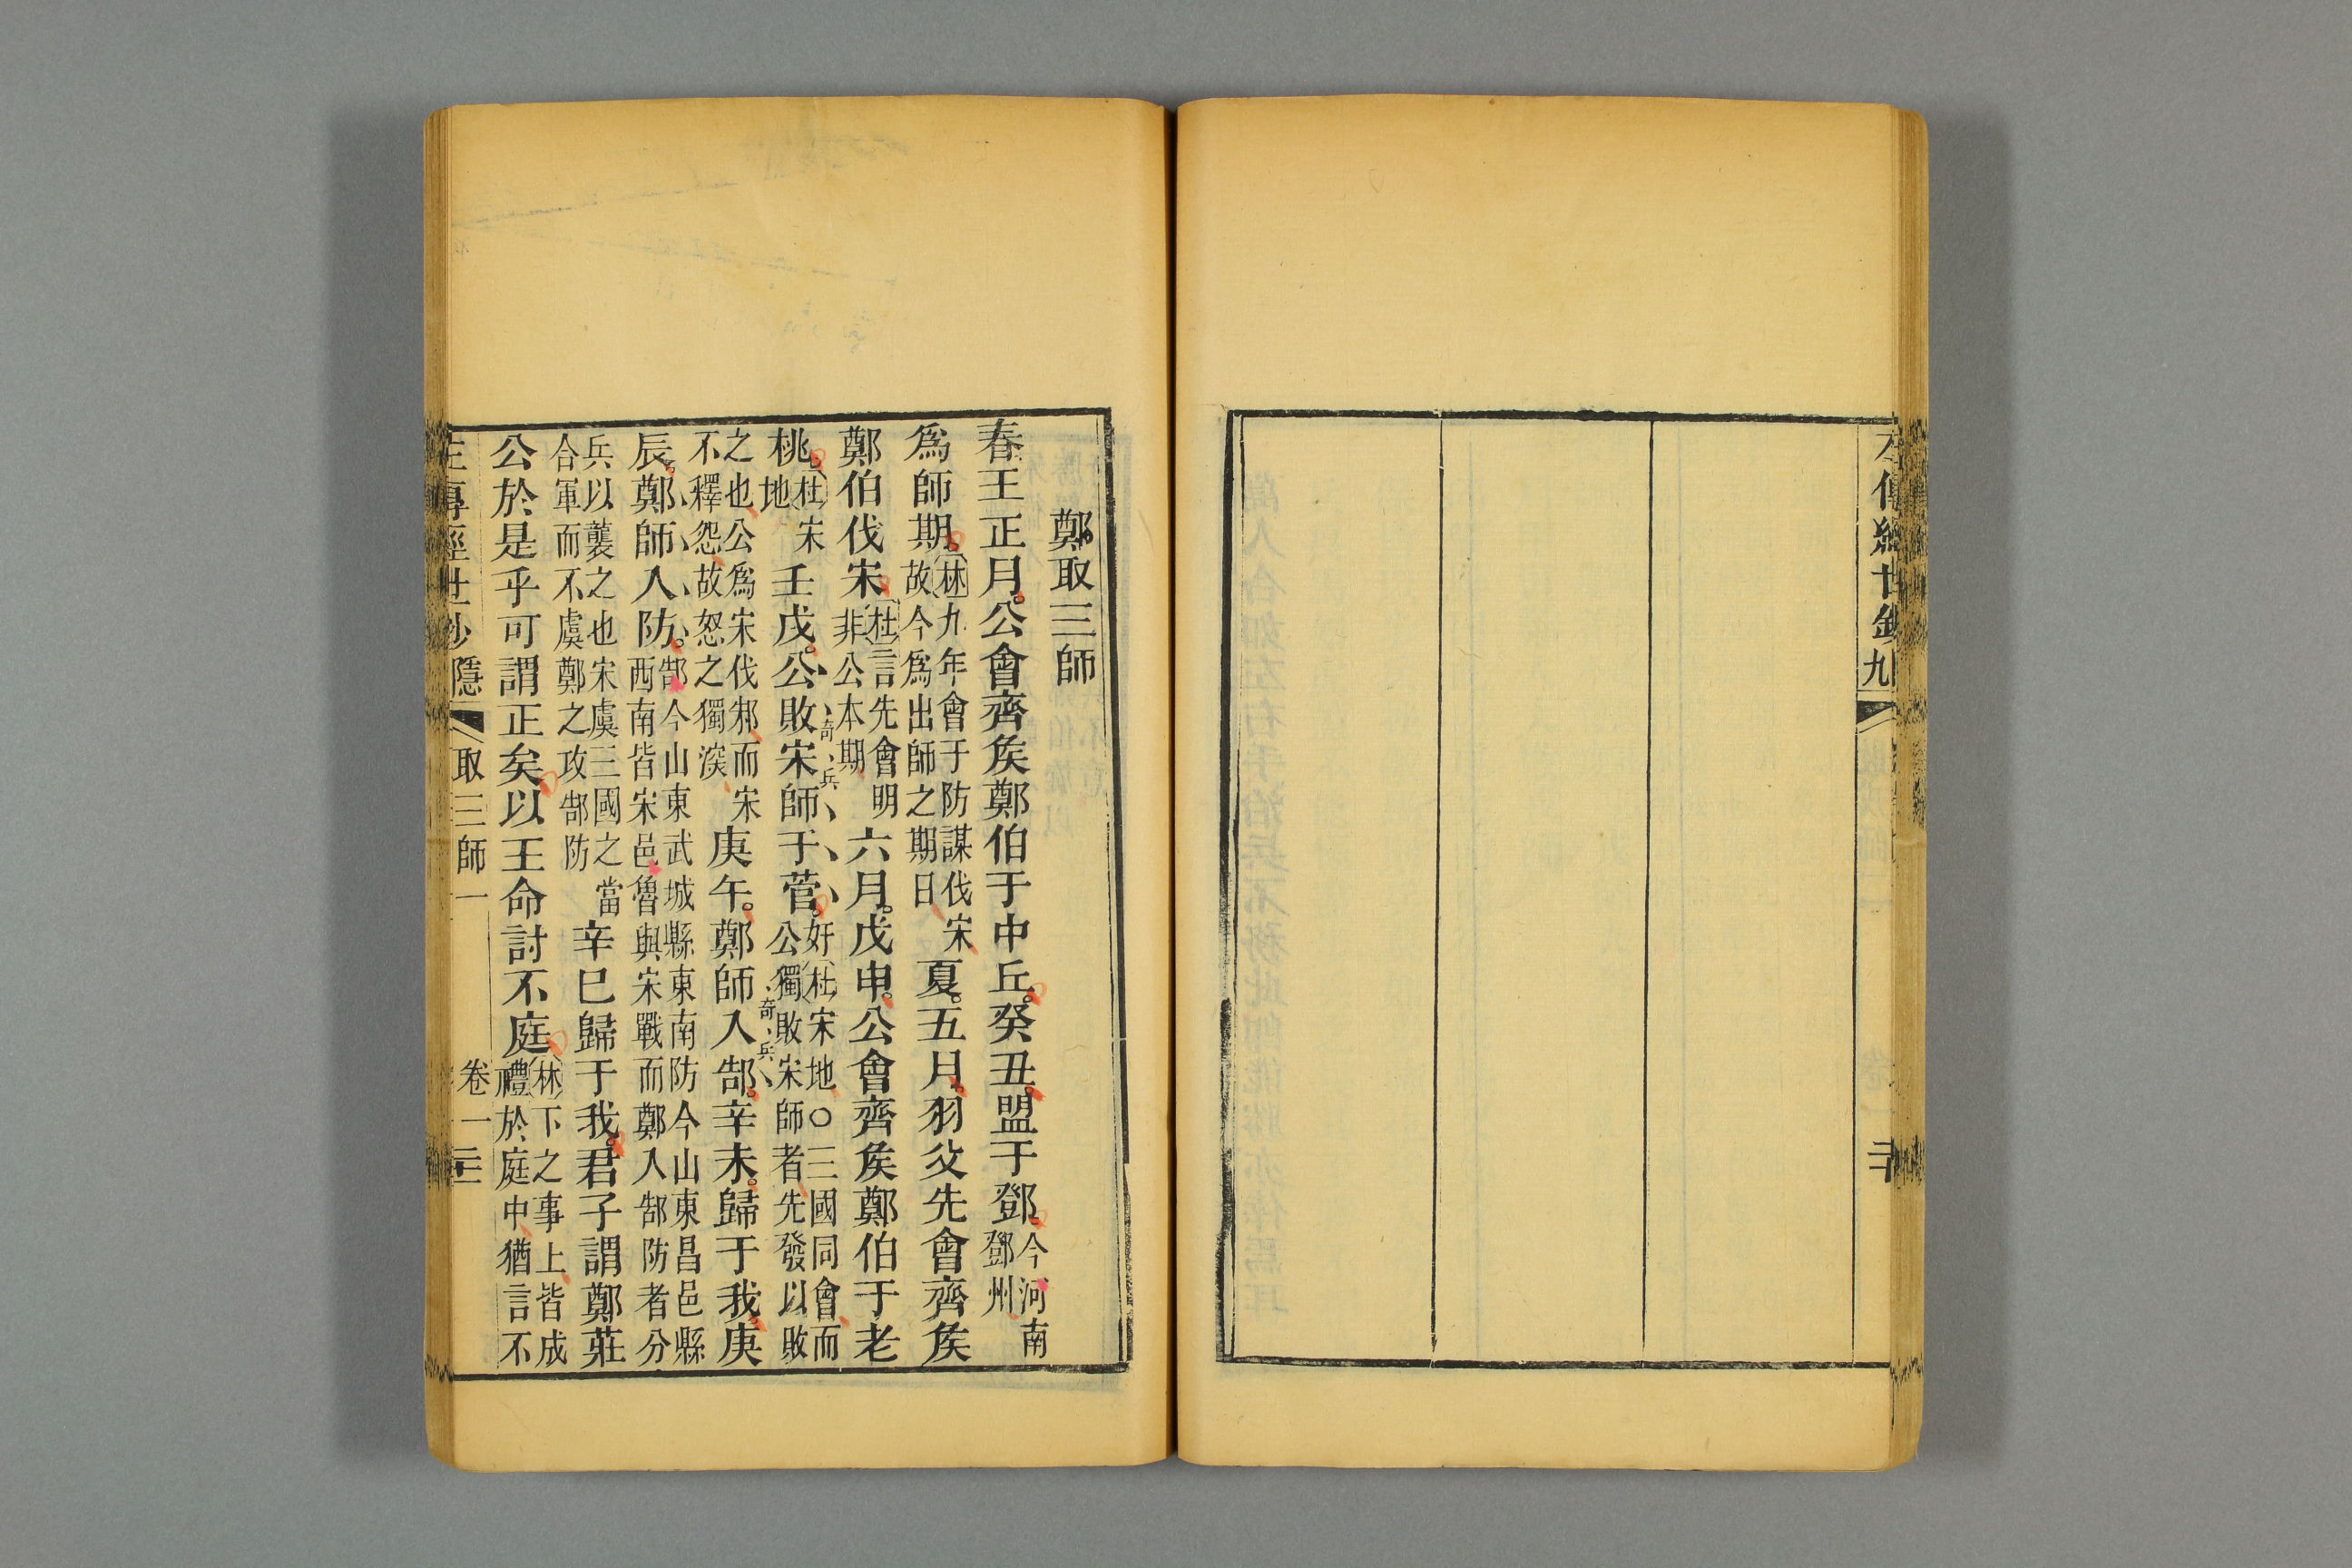 鄭取三師
春王正月公會齊矦鄭伯于中丘癸丑盟于鄧今河南鄧州
爲師期林九年會于防謀伐宋故今爲出師之期日夏五月羽父先會齊矦
鄭伯伐宋杜言先會明非公本期六月戊申公會齊矦鄭伯于老
桃杜宋地壬戌公敗宋師于菅好杜宋地○三國同會而公獨敗宋師者先發以敗
奇兵
之也公爲宋伐邾而宋不釋怨故怒之獨深庚午鄭師入郜辛未歸于我庚
奇兵
辰鄭師入防郜今山東武城縣東南防今山東昌邑縣西南皆宋邑魯與宋戰而鄭人郜防者分
兵以襲之也宋虞三國之當合軍而不虞鄭之攻郜防辛巳歸于我君子謂鄭莊
公於是乎可謂正矣以王命討不庭林下之事上皆成禮於庭中猶言不
傳經世鈔隱 取三師一 卷一